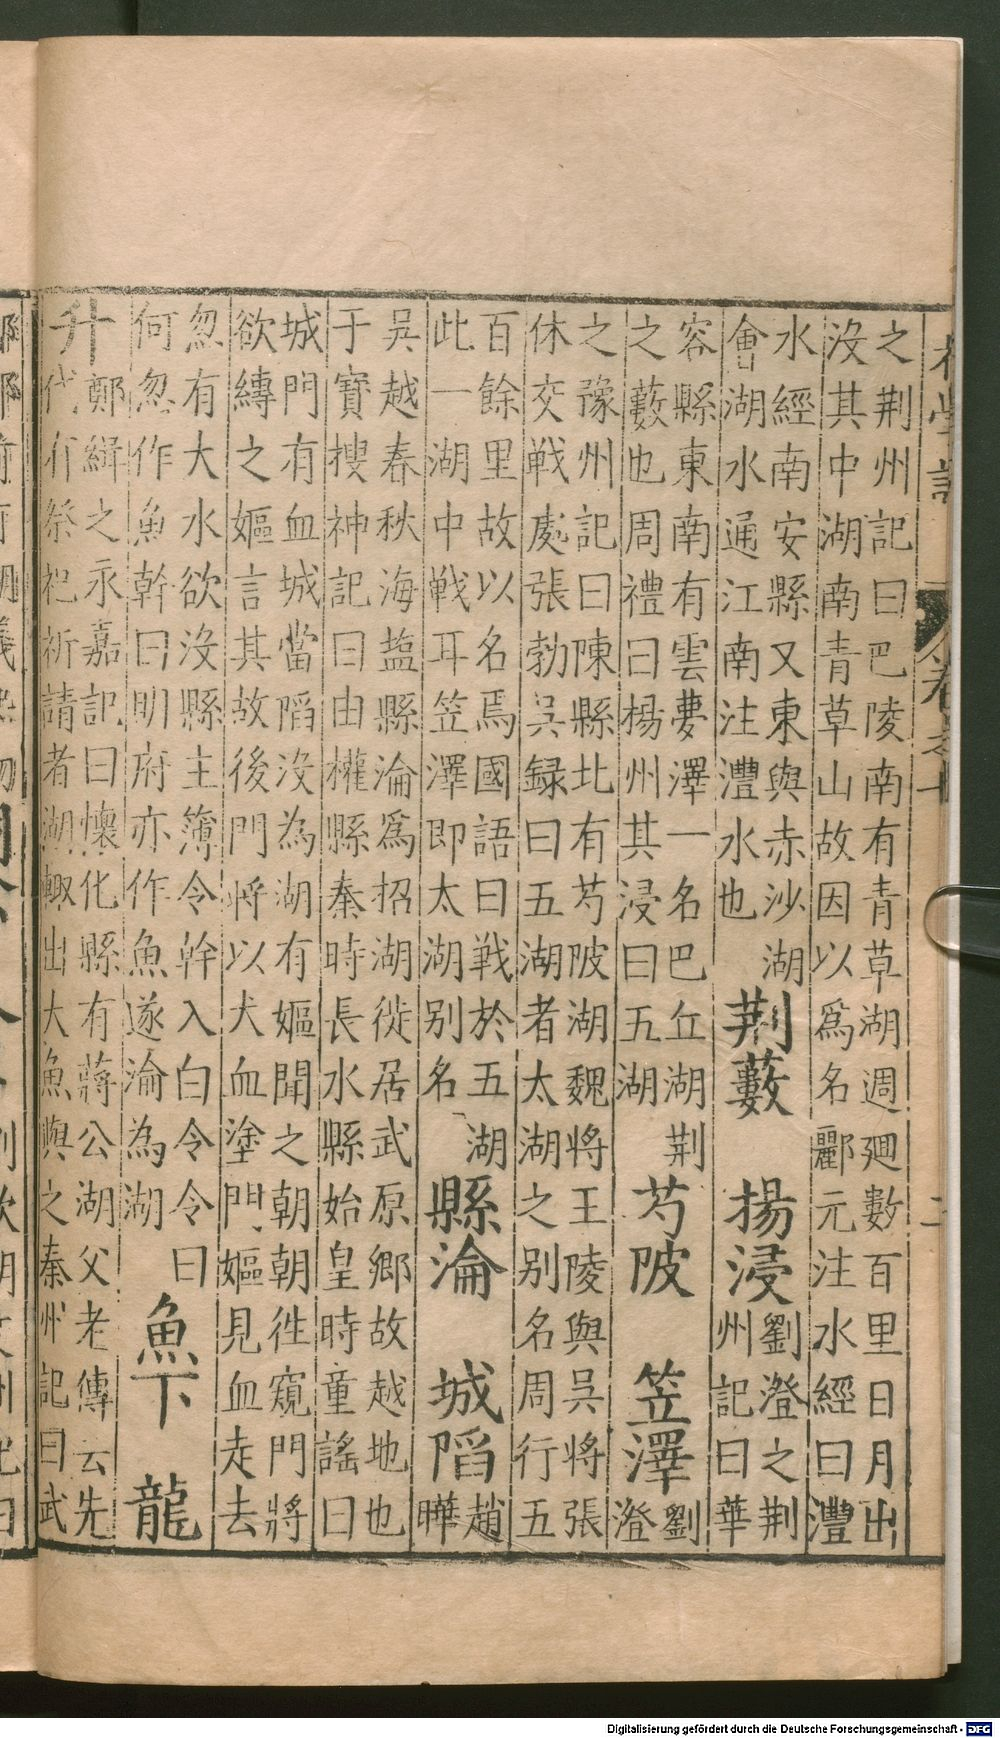 之荆州記曰巴陵南有青草湖週廻數百里日月出
没其中湖南青草山故因以為名酈元注水經曰澧
水經南安縣又東與赤沙湖
會湖水通江南注澧水也
荆藪
揚浸
劉澄之荆
州記曰華
容縣東南有雲夢澤一名巴丘湖荆
之藪也周禮曰楊州其浸曰五湖
芍陂
笠澤
劉
澄
之豫州記曰陳縣北有芍陂湖魏将王陵與吴将張
休交戦處張勃吴録曰五湖者太湖之别名周行五
百餘里故以名焉國語曰戦於五湖
此一湖中戦耳笠澤即太湖别名
縣淪
城陷
趙
曄
吴越春秋海盐縣淪爲招湖徙居武原鄉故越地也
于寶搜神記曰由權縣秦時長水縣始皇時童謠曰
城門有血城當陷没為湖有嫗聞之朝朝徃窺門將
欲縛之嫗言其故後門将以犬血塗門嫗見血走去
忽有大水欲没縣主簿令幹入白令令曰
何忽作魚幹曰明府亦作魚遂淪為湖
魚下
龍
升
鄭緝之永嘉記曰懷化縣有蔣公湖父老傳云先
代有祭祀祈請者湖輙出大魚與之秦州記曰武
Digitalisierung gefördert durch die Deutsche Forschungsgemeinschaft - DFG